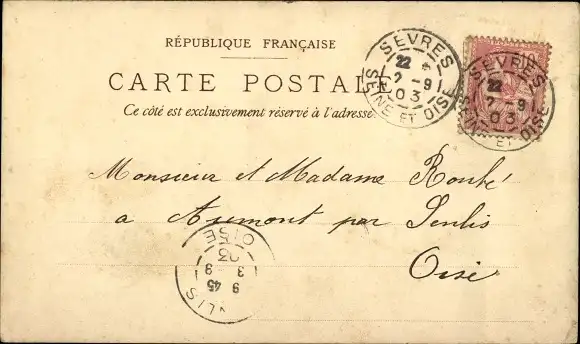 RÉPUBLIQUE FRANÇAISE
CARTE POSTALE
Ce côté est exclusivement réservé à l'adresse
SÈVRES
22
7-9
03
SEINE ET OISE
SÈVRES
22
7-9
03
SEINE ET OISE
Monsieur et Madame
a Aumont par Senlis
Oise
NLIS
9 45
3 9
03
OISE